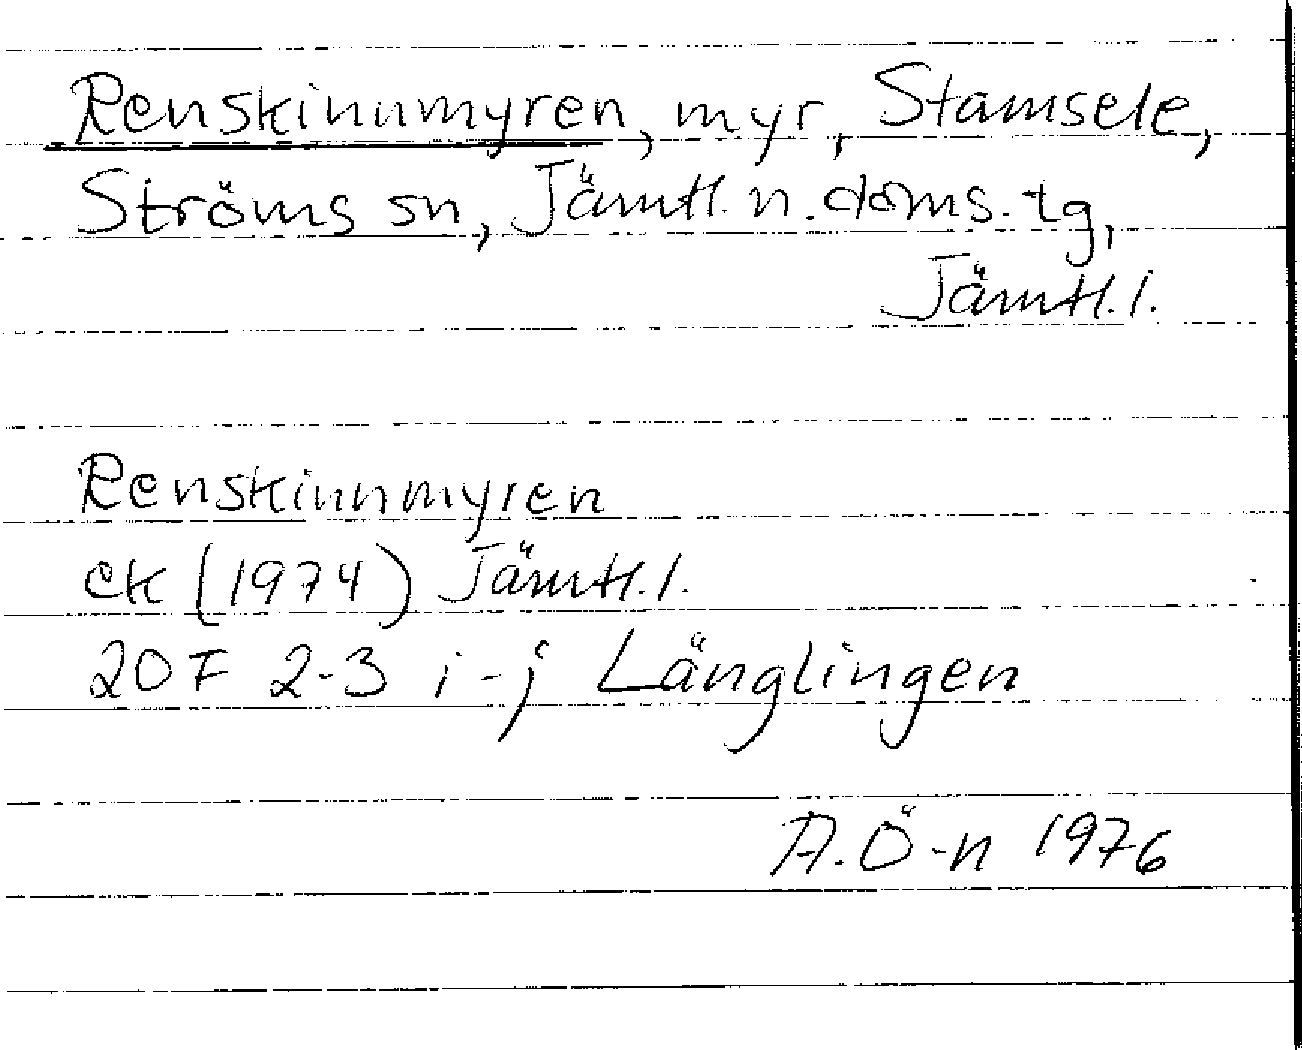 Renskinnmyren, myr, Stamsele,
Ströms sn, Jämtl. n. doms. tg,
Jämtl. l.
Renskinnmyren
ek (1974) Jämtl. l.
20F 2-3 i-j Länglingen
A. Ö-n 1976